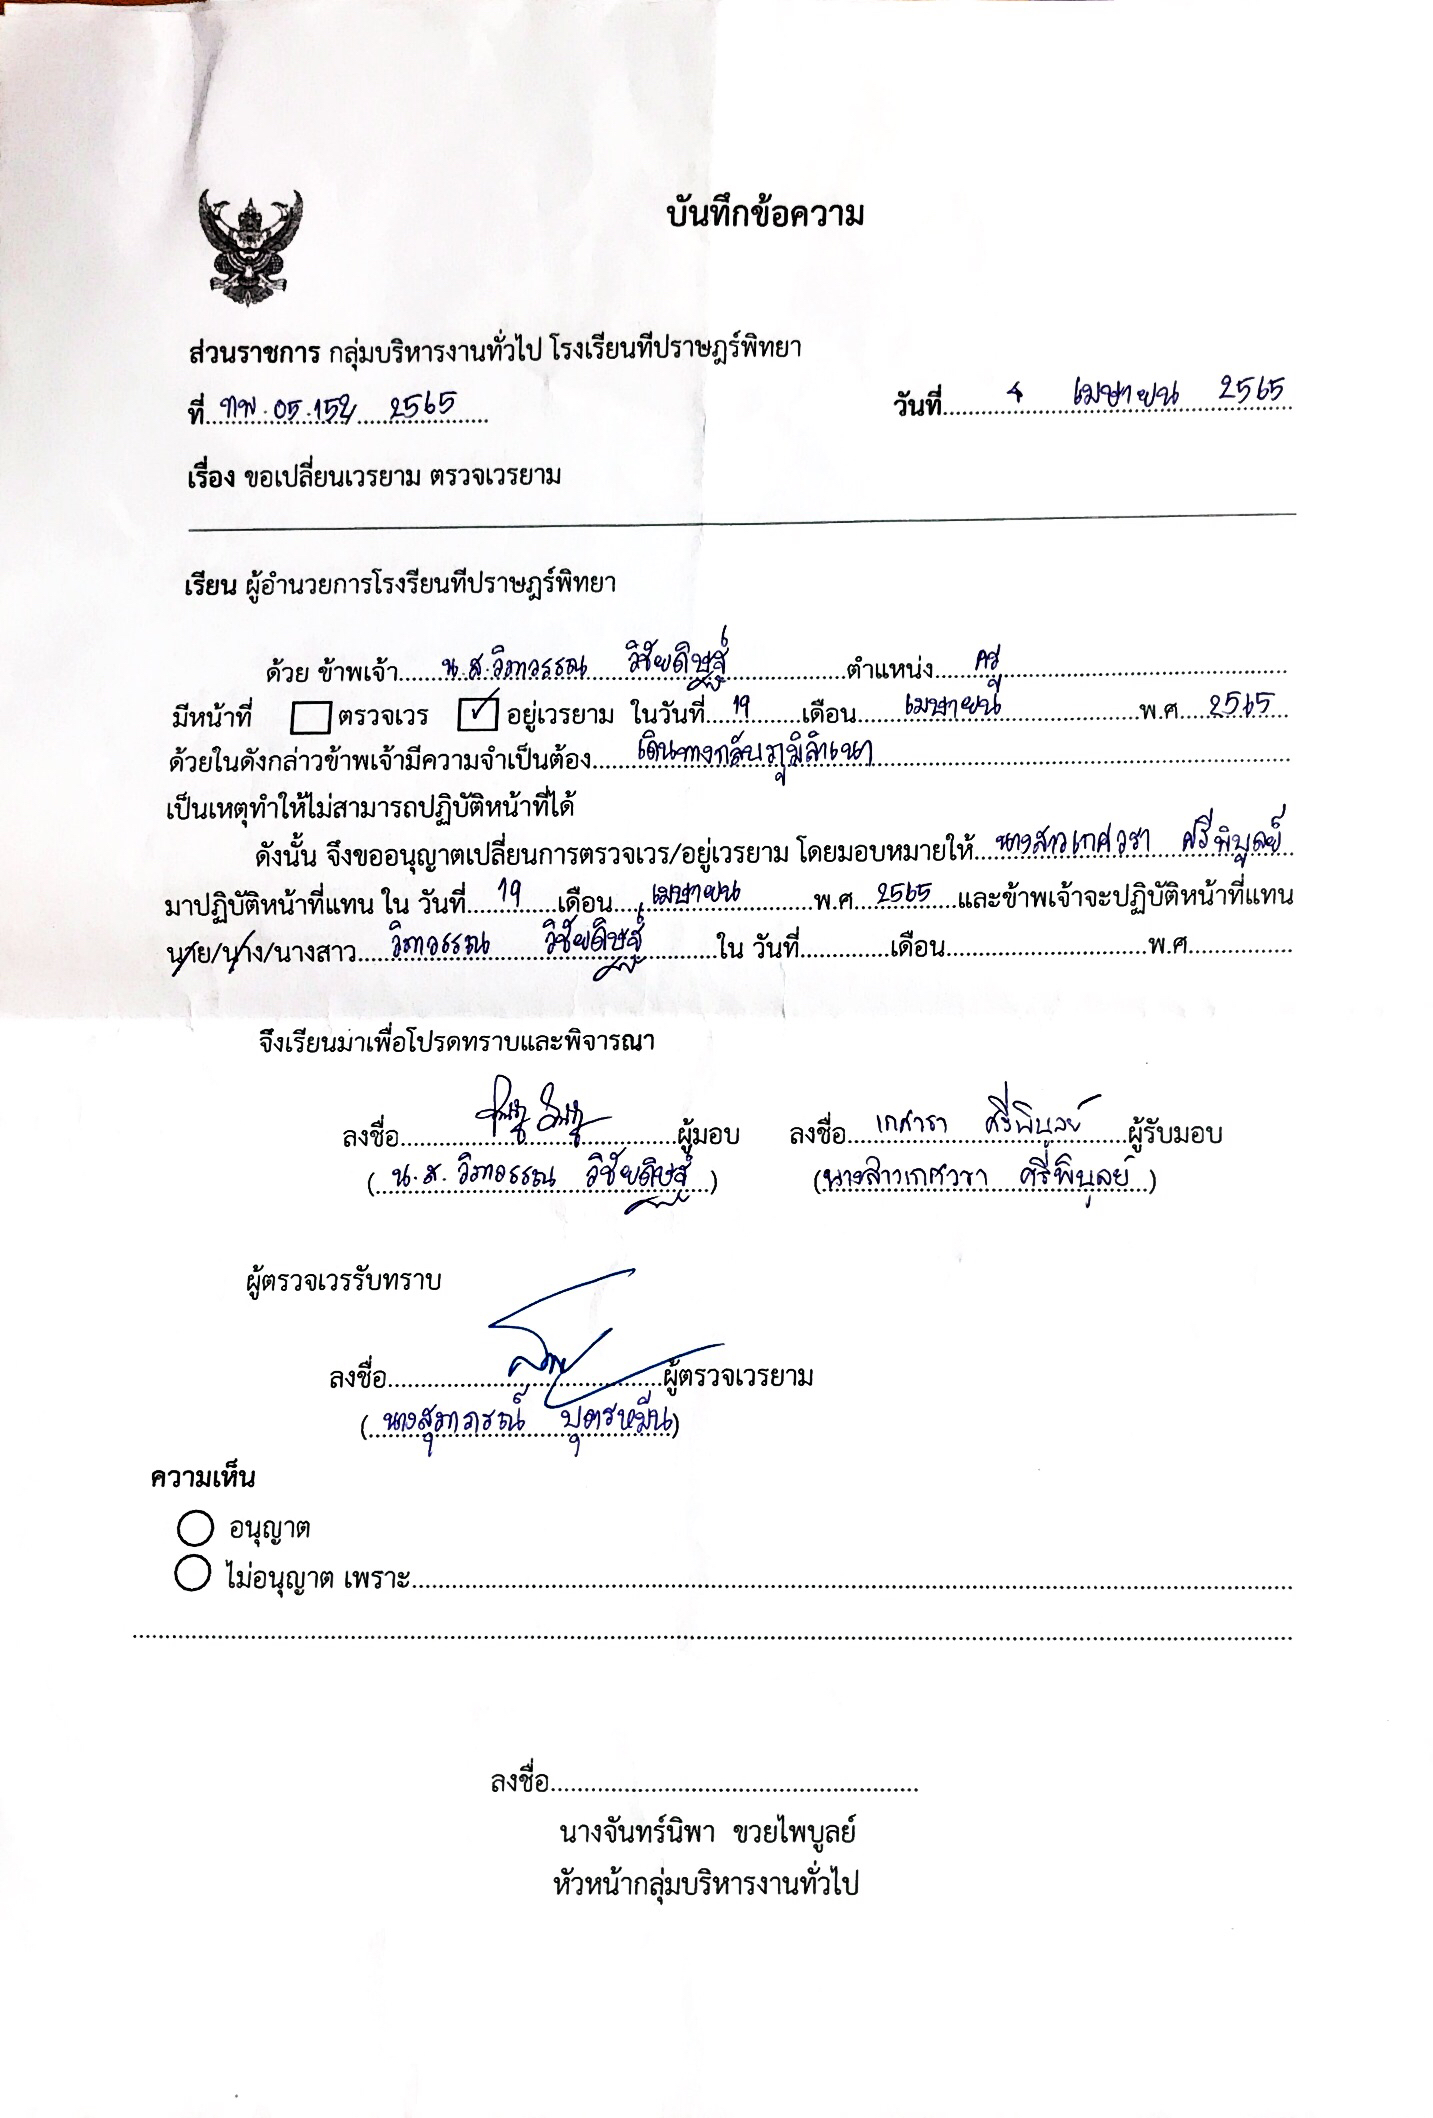 บันทึกข้อความ
ส่วนราชการ กลุ่มบริหารงานทั่วไป โรงเรียนทีปราษฎร์พิทยา
ที่ ทพ.05.152/2565 วันที่ 4 เมษายน 2565
เรื่อง ขอเปลี่ยนเวรยาม ตรวจเวรยาม
เรียน ผู้อำนวยการโรงรียนทีปราษฎร์พิทยา
ด้วย ข้าพเจ้า น.ส.วิภาวรรณ วิชัยดิษฐ์ ตำแหน่ง ครู
มีหน้าที่ ตรวจเวร ✓ อยู่เวรยาม ในวันที่ 19 เดือน เมษายน พ.ศ. 2565
ด้วยในดังกล่าวข้าพเจ้ามีความจำเป็นต้อง เดินทางกลับภูมิลำเนา
เป็นเหตุทำให้ไม่สามารถปฏิบัติหน้าที่ได้
ดังนั้น จึงขออนุญาตเปลี่ยนการตรวจเวร/อยู่เวรยาม โดยมอบหมายให้ นางสาวเกศวรา ศรีพิบูลย์
มาปฏิบัติหน้าที่แทน ใน วันที่ 19 เดือน เมษายน พ.ศ. 2565 และข้าพเจ้าจะปฏิบัติหน้าที่แทน
นาย/นาง/นางสาว วิภาวรรณ วิชัยดิษฐ์ ใน วันที่ เดือน พ.ศ.
จึงเรียนมาเพื่อโปรดทราบและพิจารณา
ลงชื่อ ผู้มอบ ลงชื่อ เกศวรา ศรีพิบูลย์ ผู้รับมอบ
(น.ส.วิภาวรรณ วิชัยดิษฐ์) (นางสาวเกศวรา ศรีพิบูลย์)
ผู้ตรวจเวรรับทราบ
ลงชื่อ ผู้ตรวจเวรยาม
(นางสุภาภรณ์ บุตรหมีน)
ความเห็น
อนุญาต
ไม่อนุญาต เพราะ
ลงชื่อ
นางจันทร์นิพา ขวยไพบูลย์
หัวหน้ากลุ่มบริหารงานทั่วไป